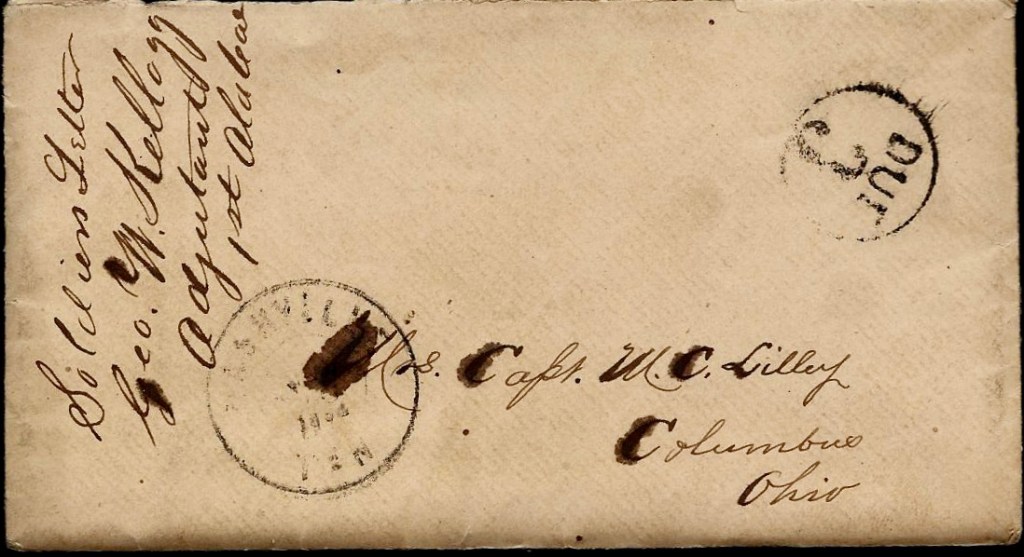 Soldiers Letter
Geo. W. Kellogg
Adjutant
1st Alaba
DUE
3
NASHVILLE
TEN
Mrs. Capt. M. C. Lilley
Columbus
Ohio